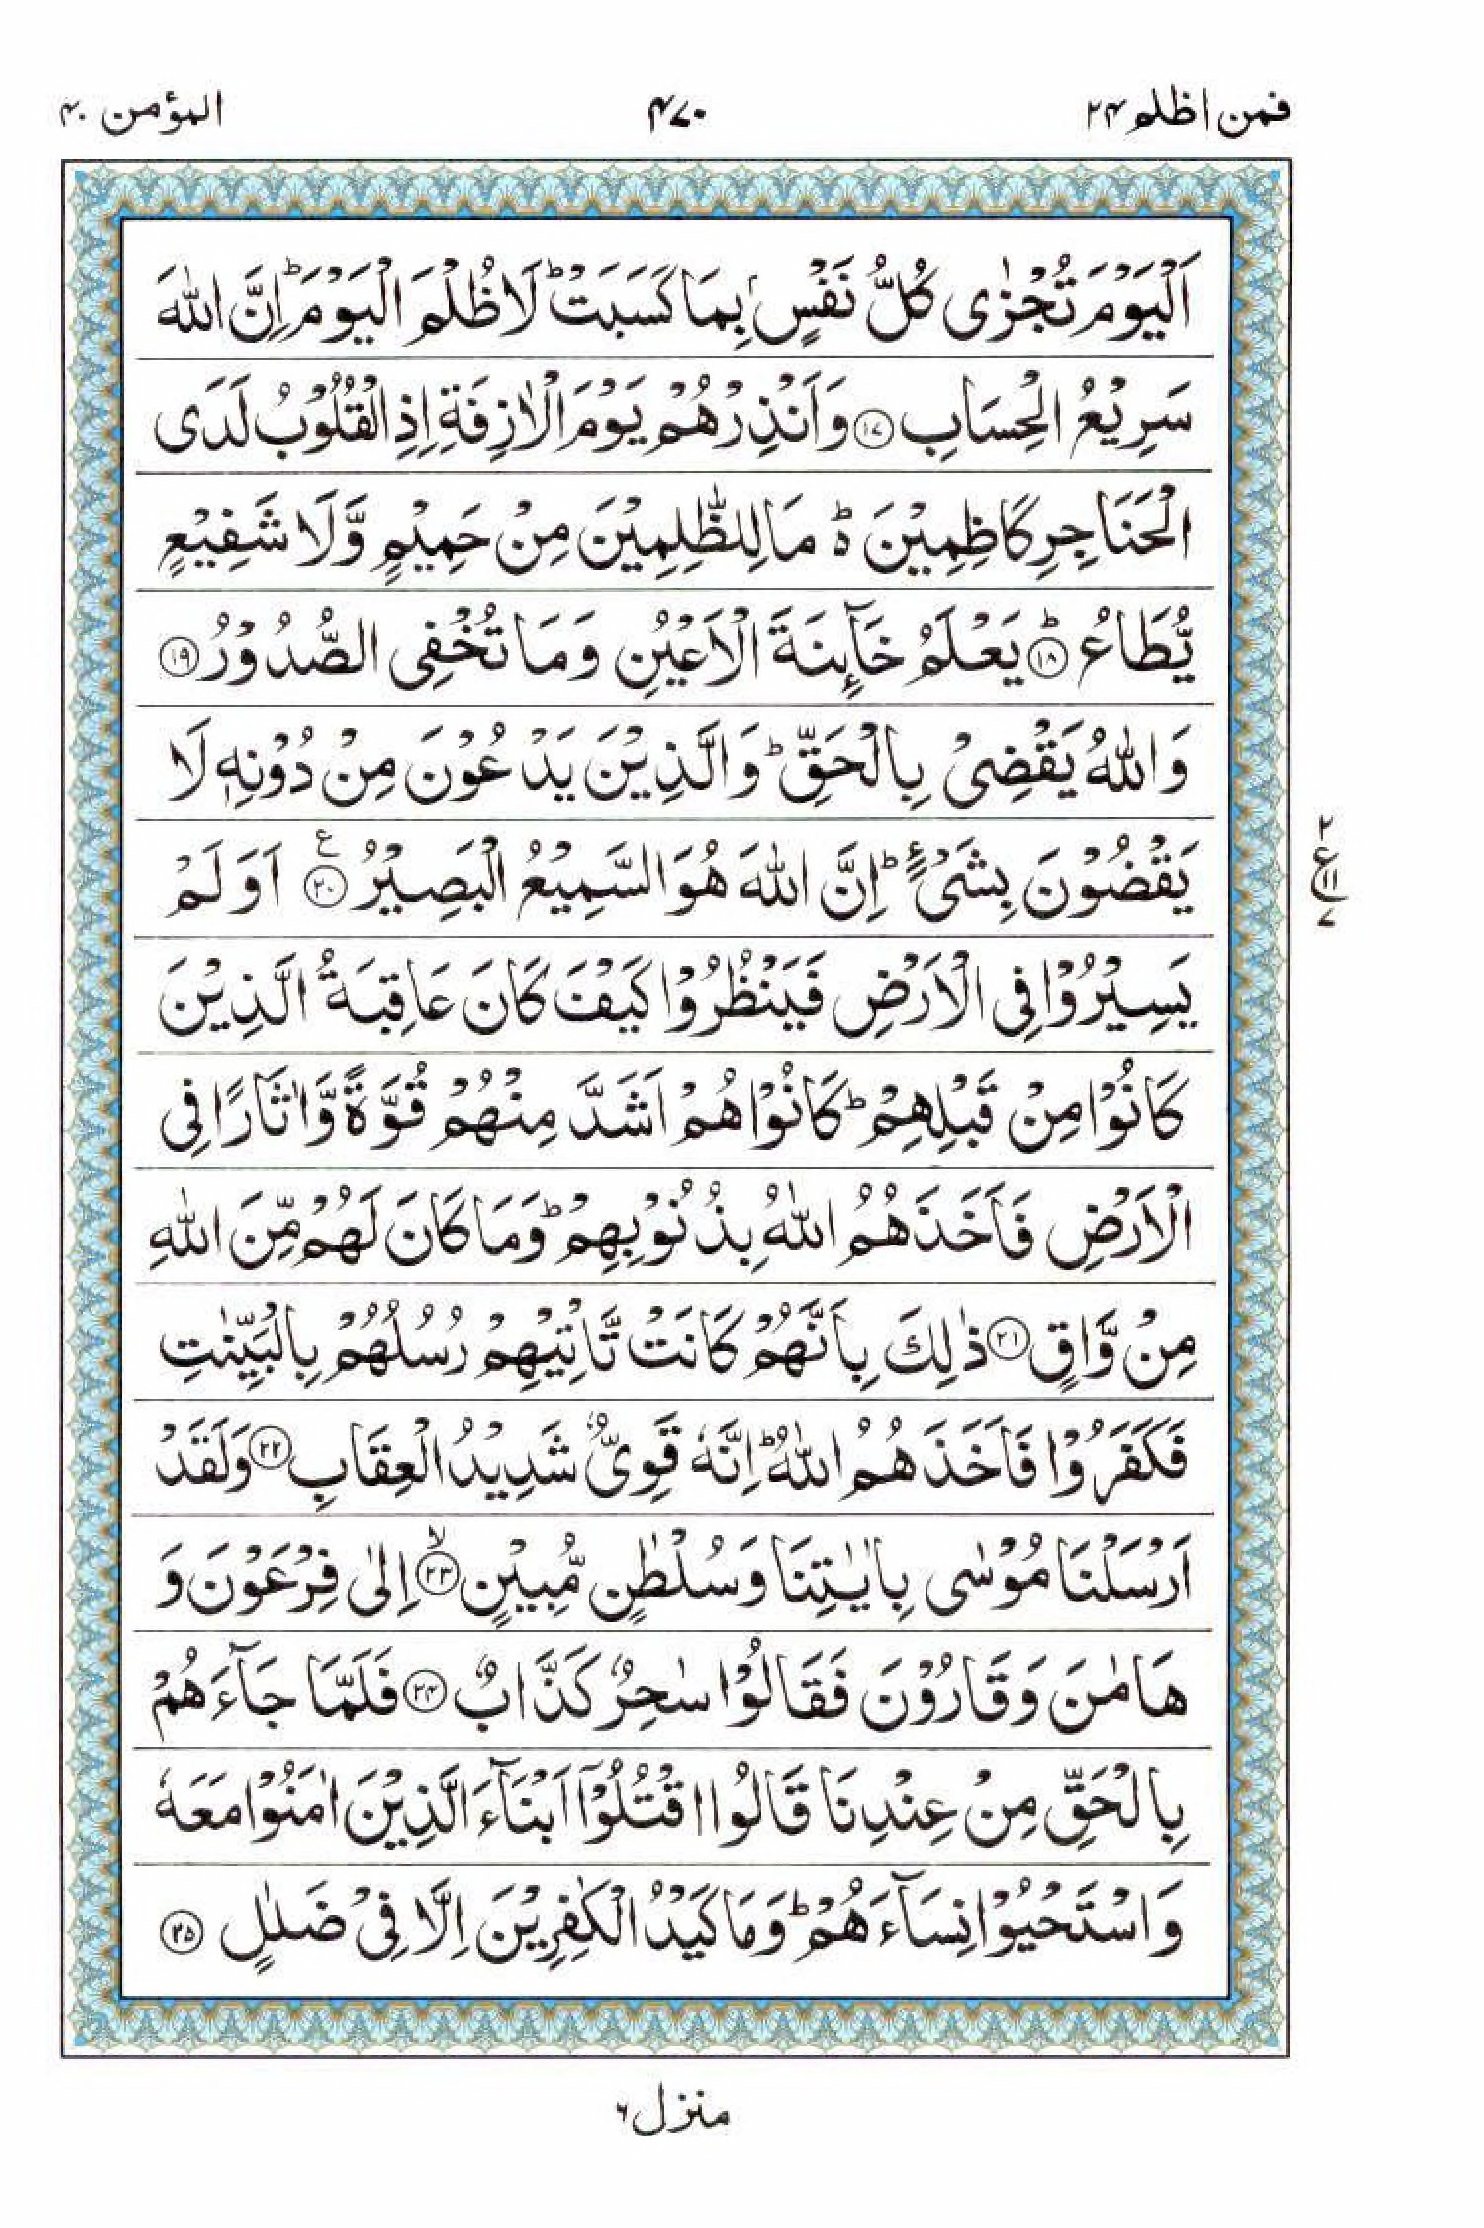 فمن اظلم ۲۴
۴۷۰
المؤمن ۴۰
اَلْیَوْمَ تُجْزٰی كُلُّ نَفْسٍۭ بِمَا كَسَبَتْ ؕ لَا ظُلْمَ الْیَوْمَ ؕ اِنَّ اللّٰهَ
سَرِیْعُ الْحِسَابِ ۝۱۷ وَاَنْذِرْهُمْ یَوْمَ الْاٰزِفَةِ اِذِ الْقُلُوْبُ لَدَی
الْحَنَاجِرِ كَاظِمِیْنَ ؕ۬ مَا لِلظّٰلِمِیْنَ مِنْ حَمِیْمٍ وَّلَا شَفِیْعٍ
یُّطَاعُ ؕ۝۱۸ یَعْلَمُ خَآىِٕنَةَ الْاَعْیُنِ وَمَا تُخْفِی الصُّدُوْرُ ۝۱۹
وَاللّٰهُ یَقْضِیْ بِالْحَقِّ ؕ وَالَّذِیْنَ یَدْعُوْنَ مِنْ دُوْنِهٖ لَا
یَقْضُوْنَ بِشَیْءٍ ؕ اِنَّ اللّٰهَ هُوَ السَّمِیْعُ الْبَصِیْرُ ۝۲۰ ع اَوَلَمْ
۲ ع ۱۱ ۷
یَسِیْرُوْا فِی الْاَرْضِ فَیَنْظُرُوْا كَیْفَ كَانَ عَاقِبَةُ الَّذِیْنَ
كَانُوْا مِنْ قَبْلِهِمْ ؕ كَانُوْا هُمْ اَشَدَّ مِنْهُمْ قُوَّةً وَّاٰثَارًا فِی
الْاَرْضِ فَاَخَذَهُمُ اللّٰهُ بِذُنُوْبِهِمْ ؕ وَمَا كَانَ لَهُمْ مِّنَ اللّٰهِ
مِنْ وَّاقٍ ۝۲۱ ذٰلِكَ بِاَنَّهُمْ كَانَتْ تَّاْتِیْهِمْ رُسُلُهُمْ بِالْبَیِّنٰتِ
فَكَفَرُوْا فَاَخَذَهُمُ اللّٰهُ ؕ اِنَّهٗ قَوِیٌّ شَدِیْدُ الْعِقَابِ ۝۲۲ وَلَقَدْ
اَرْسَلْنَا مُوْسٰی بِاٰیٰتِنَا وَسُلْطٰنٍ مُّبِیْنٍ ۙ۝۲۳ اِلٰی فِرْعَوْنَ وَ
هَامٰنَ وَقَارُوْنَ فَقَالُوْا سٰحِرٌ كَذَّابٌ ۝۲۴ فَلَمَّا جَآءَهُمْ
بِالْحَقِّ مِنْ عِنْدِنَا قَالُوا اقْتُلُوْۤا اَبْنَآءَ الَّذِیْنَ اٰمَنُوْا مَعَهٗ
وَاسْتَحْیُوْا نِسَآءَهُمْ ؕ وَمَا كَیْدُ الْكٰفِرِیْنَ اِلَّا فِیْ ضَلٰلٍ ۝۲۵
منزل ۶